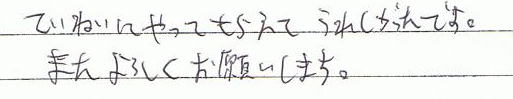 ていねいにやってもらえて うれしかったです。
またよろしくお願いします。